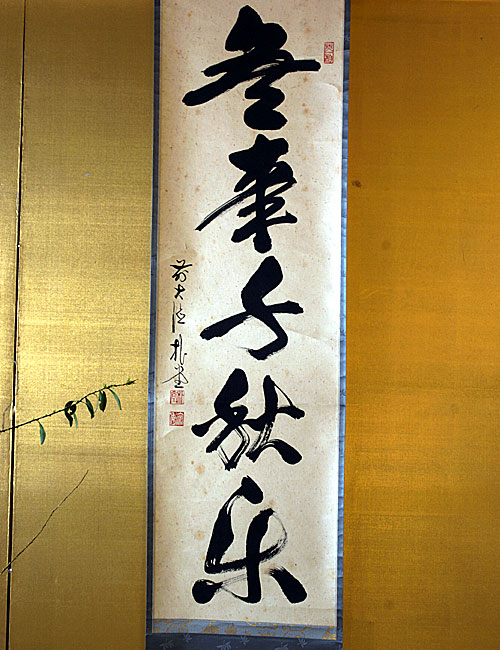 無事千秋楽
前大徳